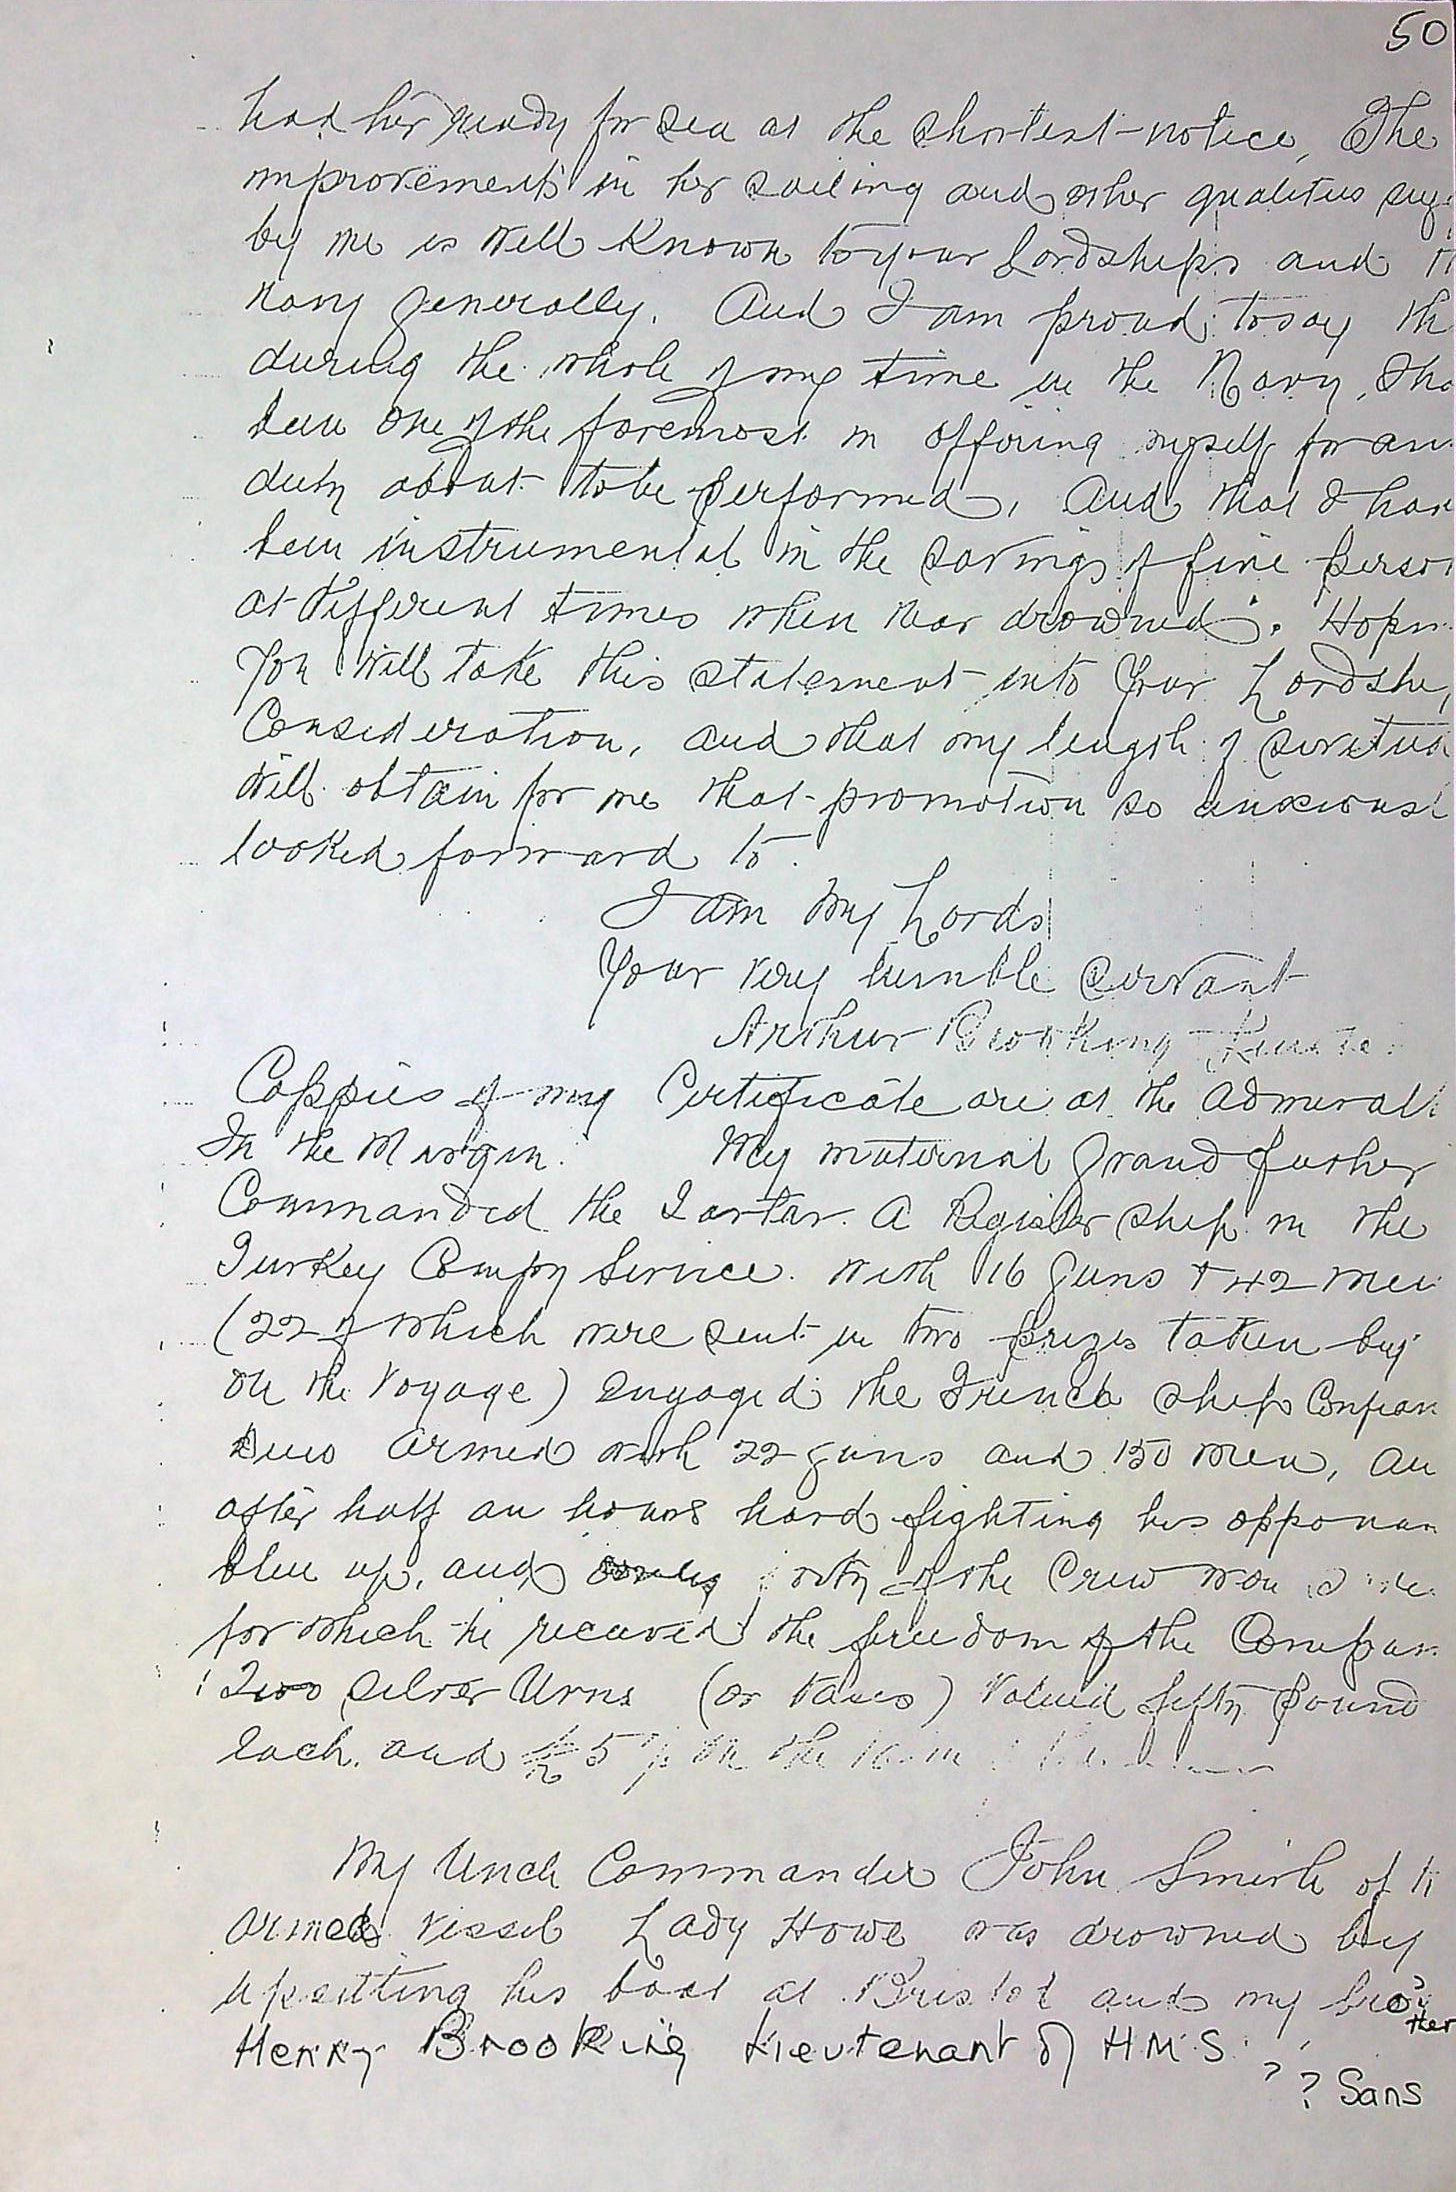 50
had her ready for sea at the shortest notice, The
improvements in her sailing and other qualities sug
by me is well Known to your Lordships and
Navy generally. And I am proud to say th
during the whole of my time in the Navy, I ha
been one of the foremost in offering myself for an
duty about to be performed, And that I hav
been instrumental in the savings of five perso
at different times when near drowned. Hopn
You will take this statement into Your Lordshi
Consideration, and that my length of servitud
will obtain for me that promotion so anxiousl
looked forward to.
I am My Lords
Your very humble Servant
Arthur Brooking
Coppies of my Certificate are at the Admiralt
In the Margin. My maternal Grand father
Commanded the Tartar. A Register Ship in the
Turkey Compy Service. with 16 Guns + 42 men
(22 of which were sent in two prizes taken by
on the Voyage) engaged the French Ship Compan
armed with 22 guns and 150 men, an
after half an hours hard fighting his opponan
blew up, and of the Crew
for which he received the freedom of the Compan
Two Silver Urns (or Vases) Valued fifty Pound
each. and 5 on the
My Uncle Commander John Smith of t
armed vessel Lady Howe was drowned by
upsetting his boat at Bristol and my bro
ther
Henry Brooking Lieutenant of H.M.S.
? ? Sans